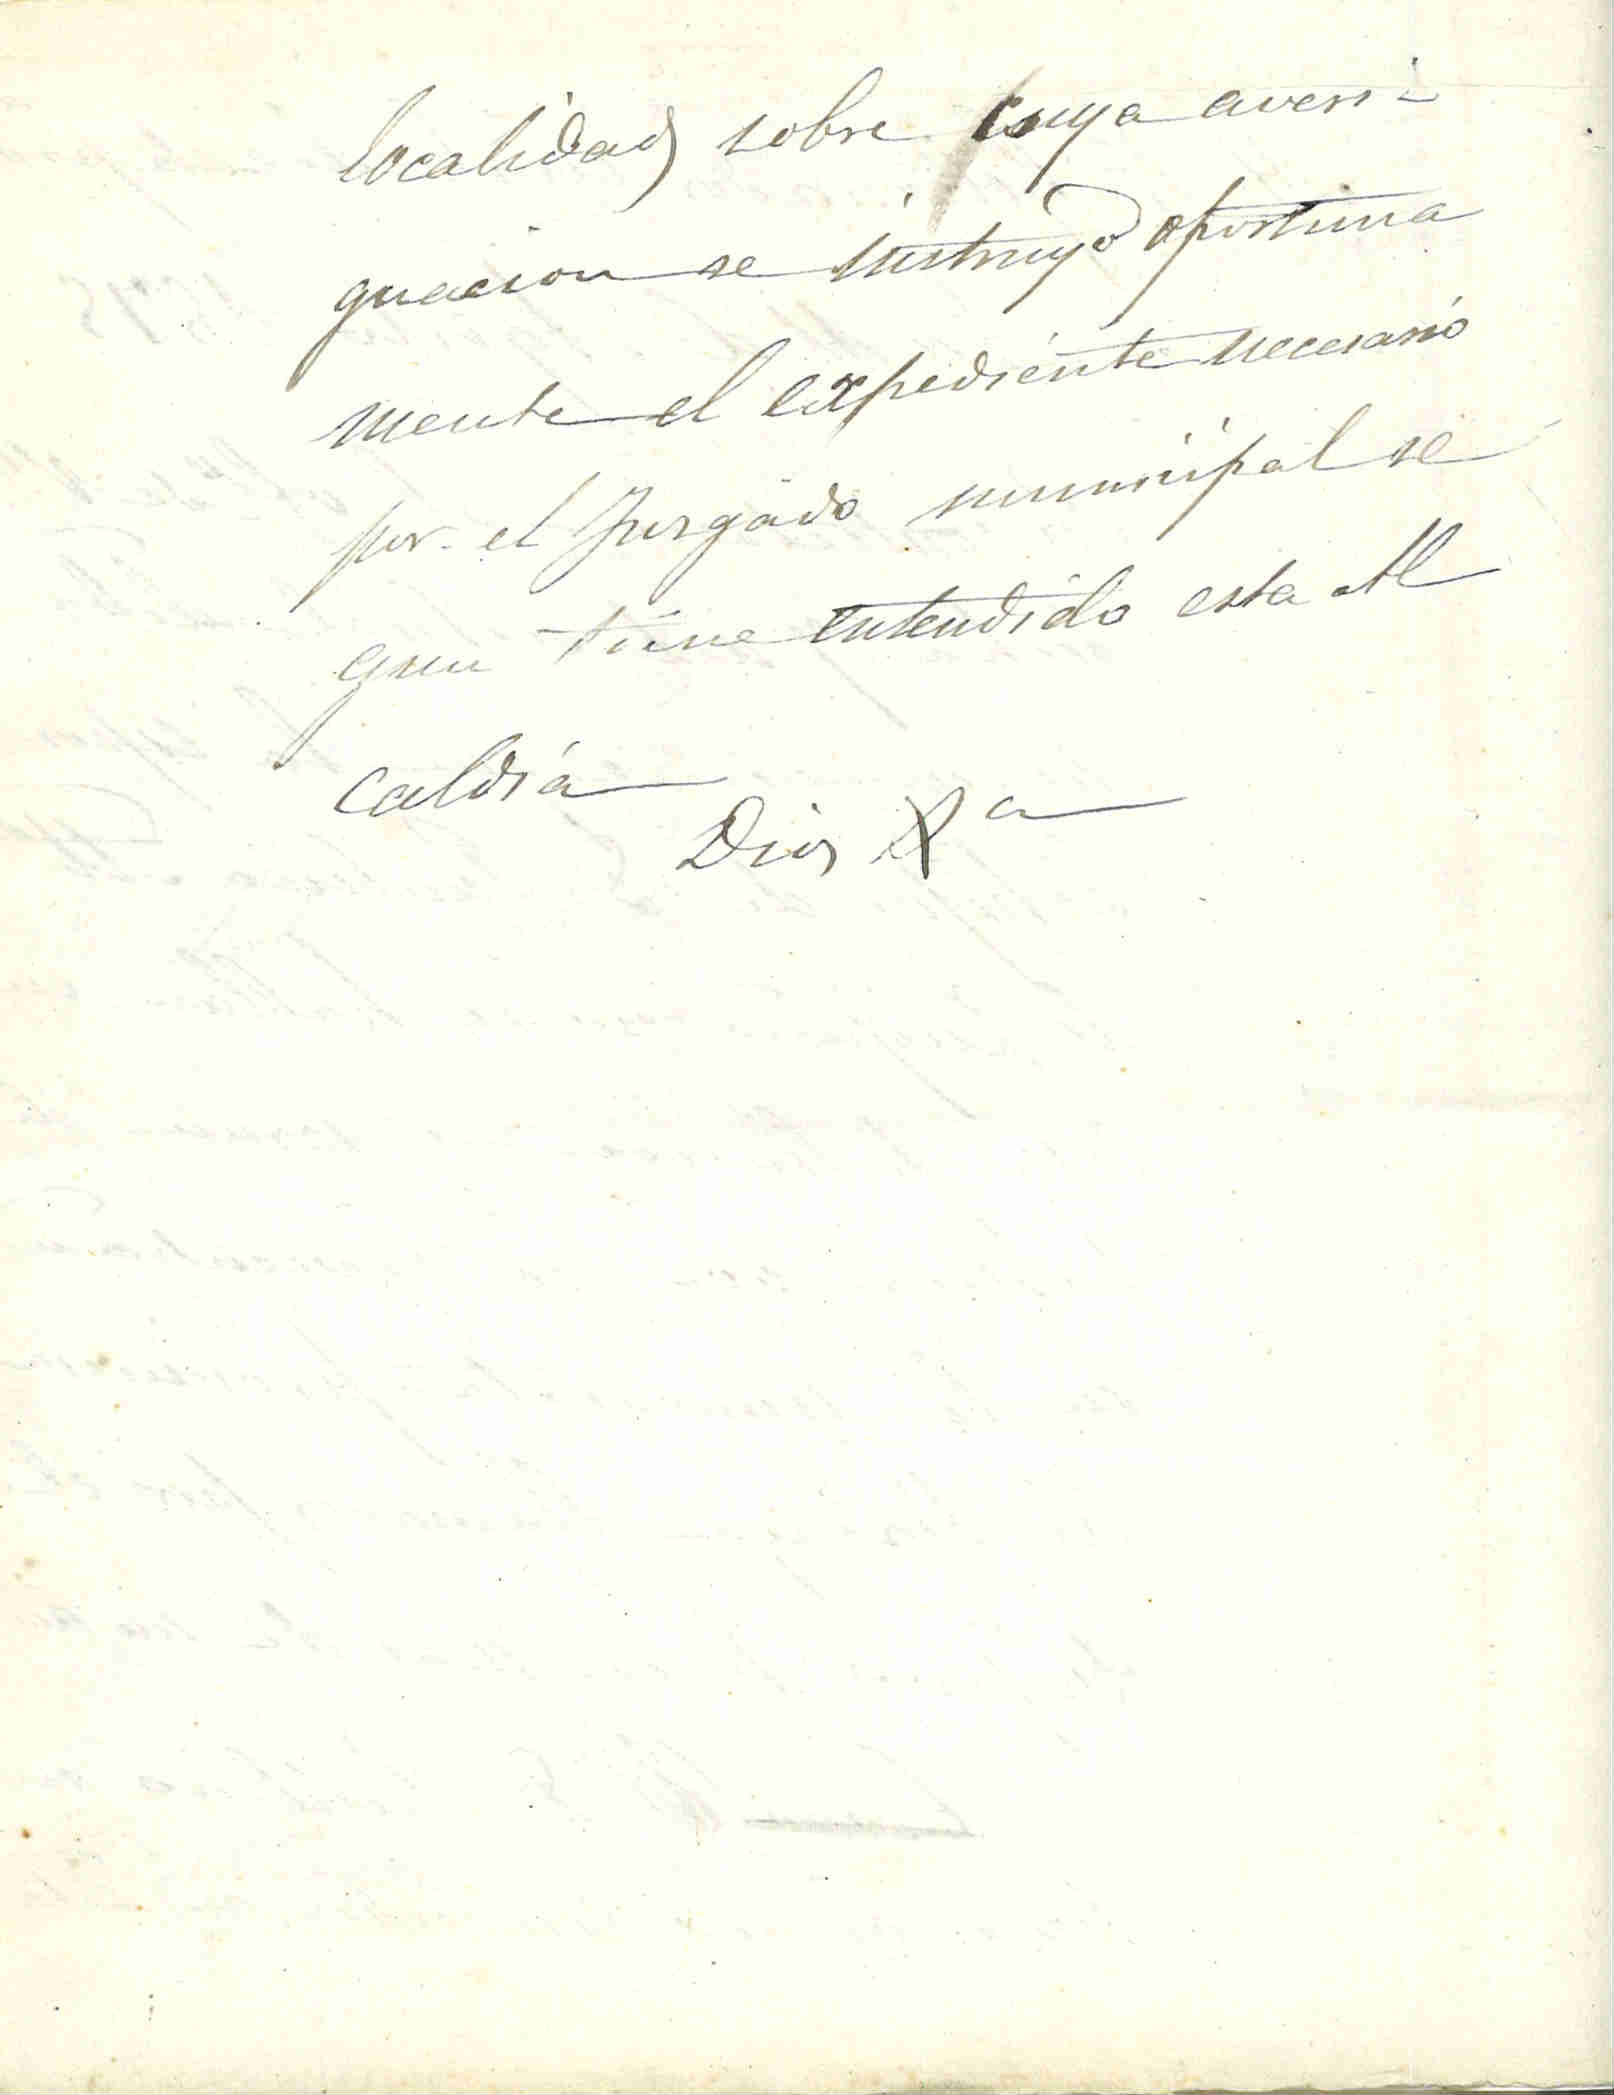 localidad sobre cuya averi
guacion se instruyó oportuna
mente el expediente necesario
por el Juzgado municipal se
gun tiene entendido esta Al
caldia
Dios